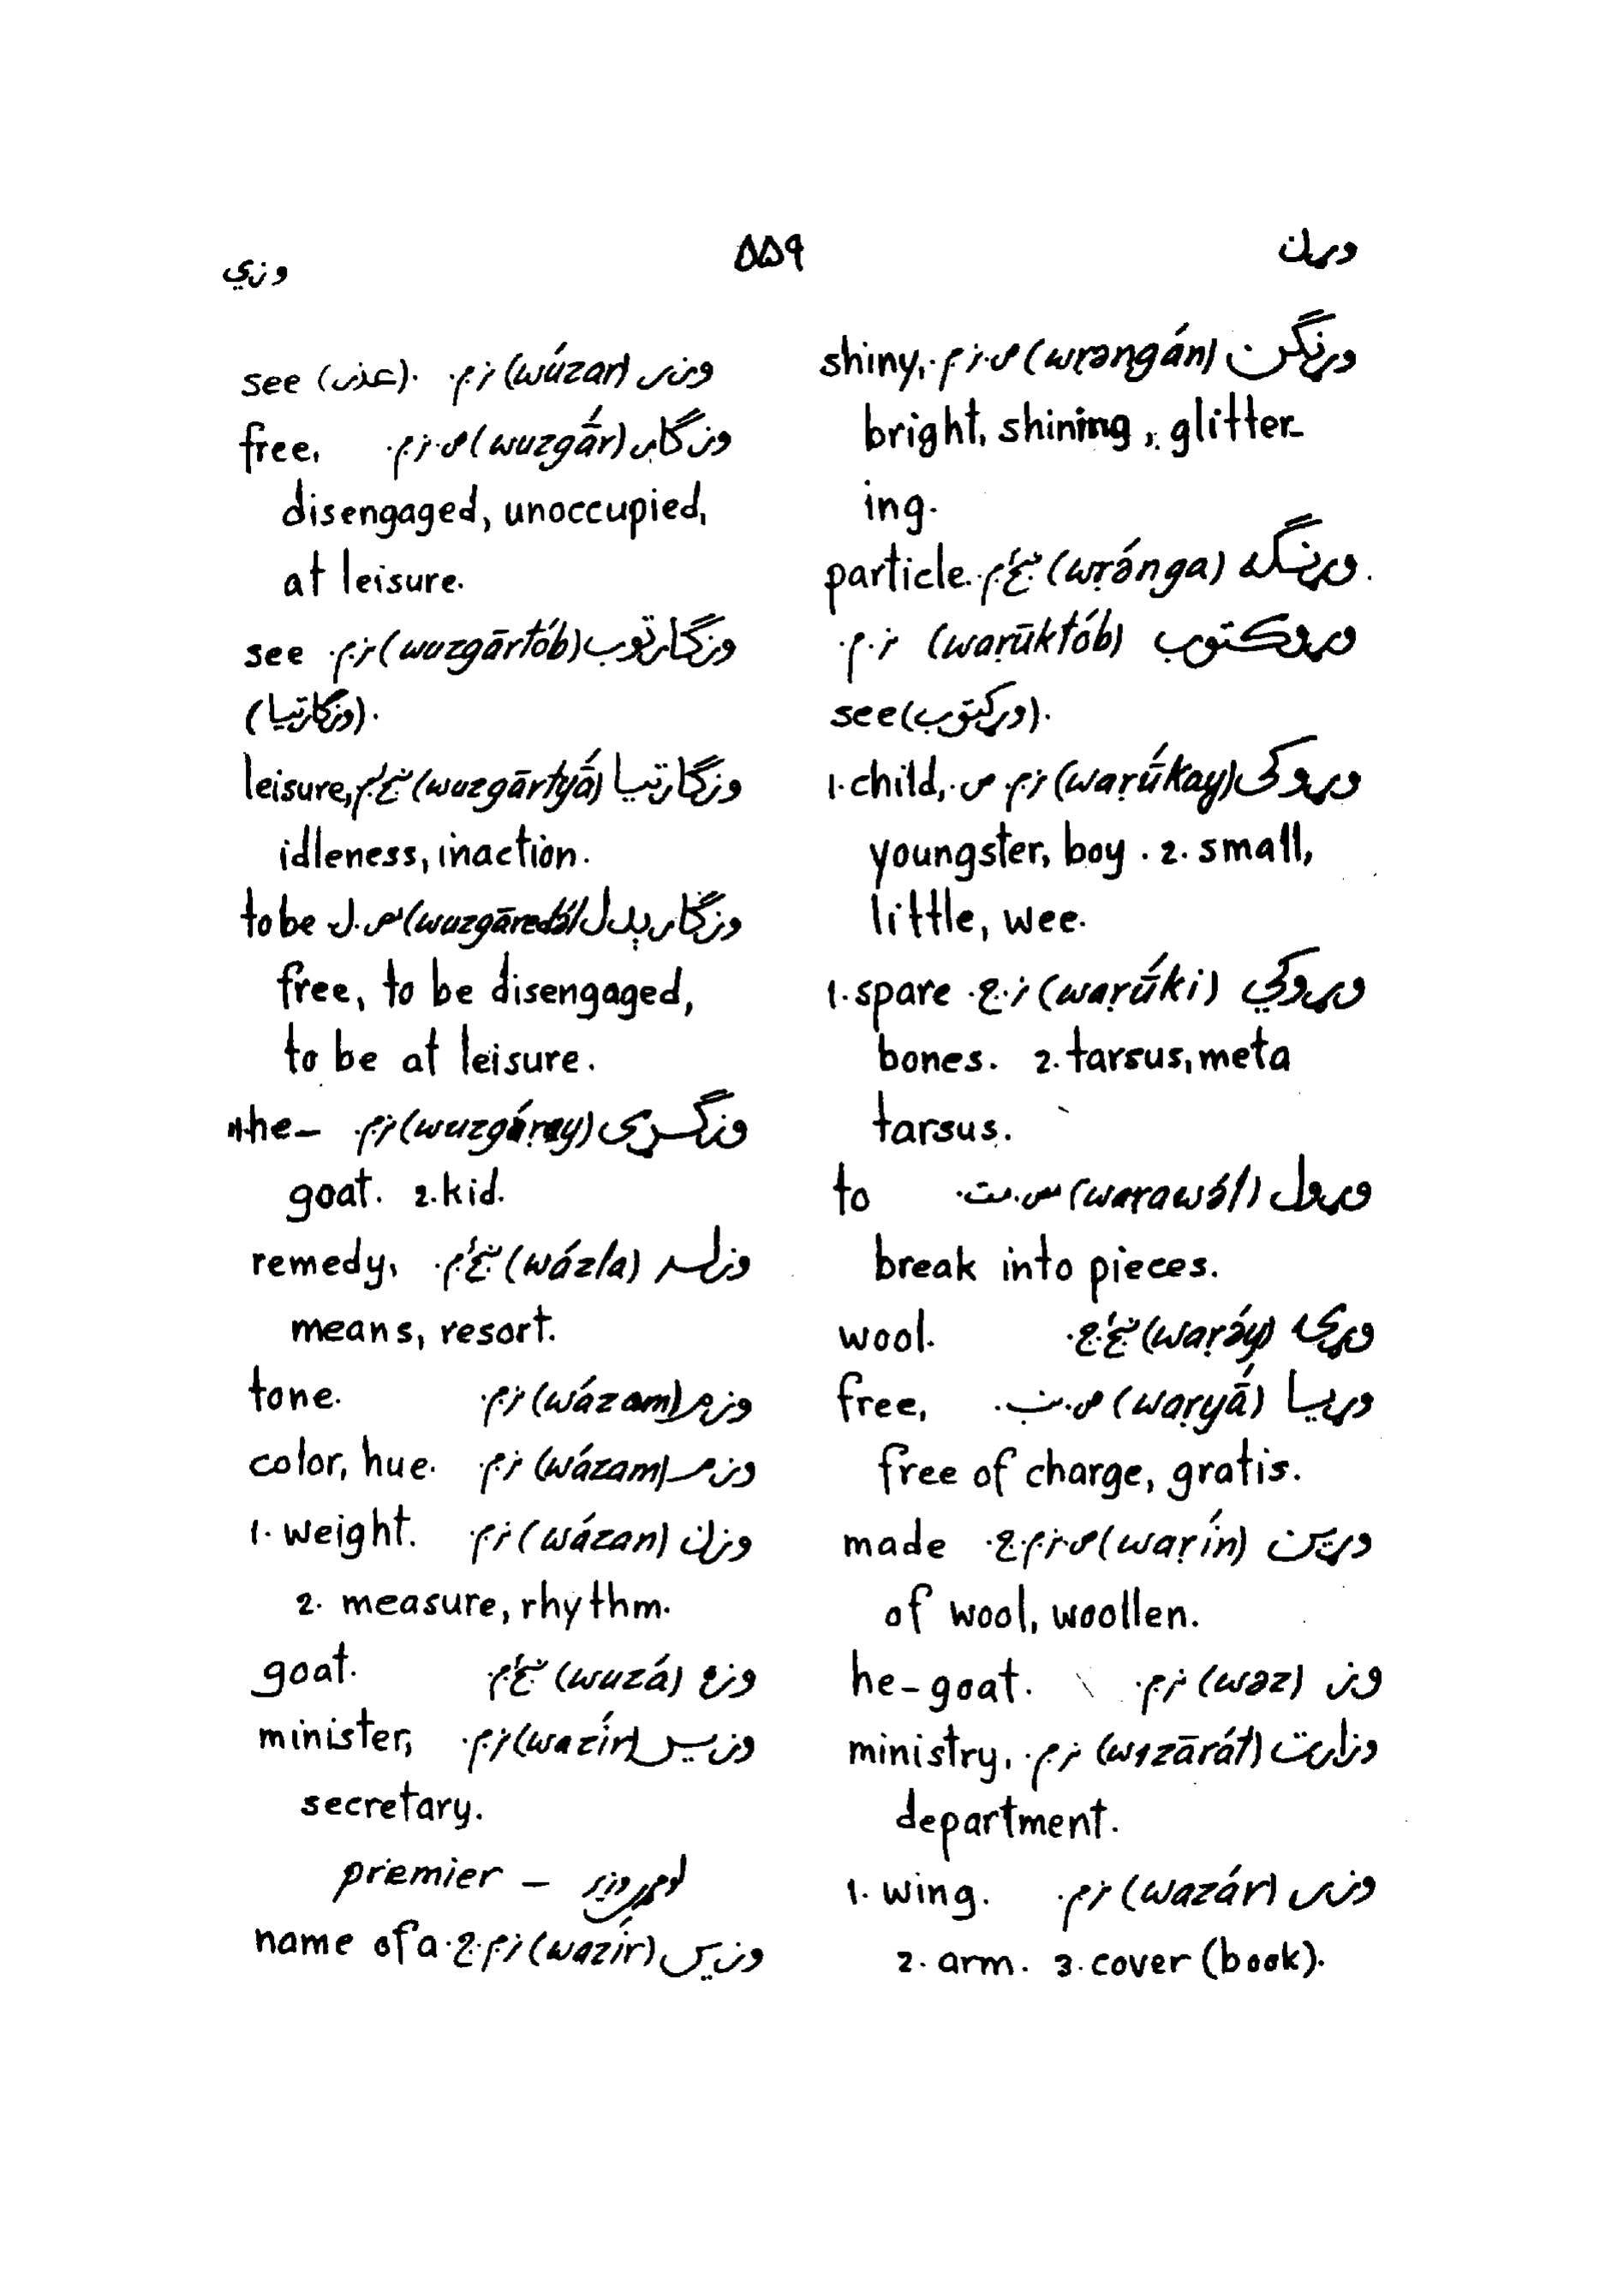 وړن ۵۵۹ وزي
وړنګن (wṛəngán) ص.ن.م. shiny,
bright, shining, glitter-
ing.
وړنګه (wṛə́nga) ښځ.م. particle.
وړوکتوب (waṛūktób) ن.م.
see (وړکتوب).
وړوکی (waṛū́kay) ن.م. ص. 1. child,
youngster, boy. 2. small,
little, wee.
وړوکي (waṛū́ki) ن.ج. 1. spare
bones. 2. tarsus, meta
tarsus.
وړول (waṛawə́l) مص.مت. to
break into pieces.
وړۍ (waṛə́y) ښځ.ج. wool.
وړیا (waṛyā́) ص.ب. free,
free of charge, gratis.
وړین (waṛín) ص.ن.م.ج. made
of wool, woollen.
وز (wəz) ن.م. he-goat.
وزارت (wizārát) ن.م. ministry,
department.
وزر (wazár) ن.م. 1. wing.
2. arm. 3. cover (book).
وزر (wúzar) ن.م. see (عذر).
وزګار (wuzgā́r) ص.ن.م. free,
disengaged, unoccupied,
at leisure.
وزګارتوب (wuzgārtób) ن.م. see
(وزګارتیا).
وزګارتیا (wuzgārtyā́) ښځ.م. leisure,
idleness, inaction.
وزګارېدل (wuzgāredə́l) مص.ل. to be
free, to be disengaged,
to be at leisure.
وزګړی (wuzgáṛay) ن.م. 1. he-
goat. 2. kid.
وزله (wázla) ښځ.م. remedy,
means, resort.
وزم (wázam) ن.م. tone.
وزم (wázam) ن.م. color, hue.
وزن (wázan) ن.م. 1. weight.
2. measure, rhythm.
وزه (wuzá) ښځ.م. goat.
وزیر (wazír) ن.م. minister,
secretary.
لوی وزیر — premier
وزیر (wazír) ن.م.ج. name of a